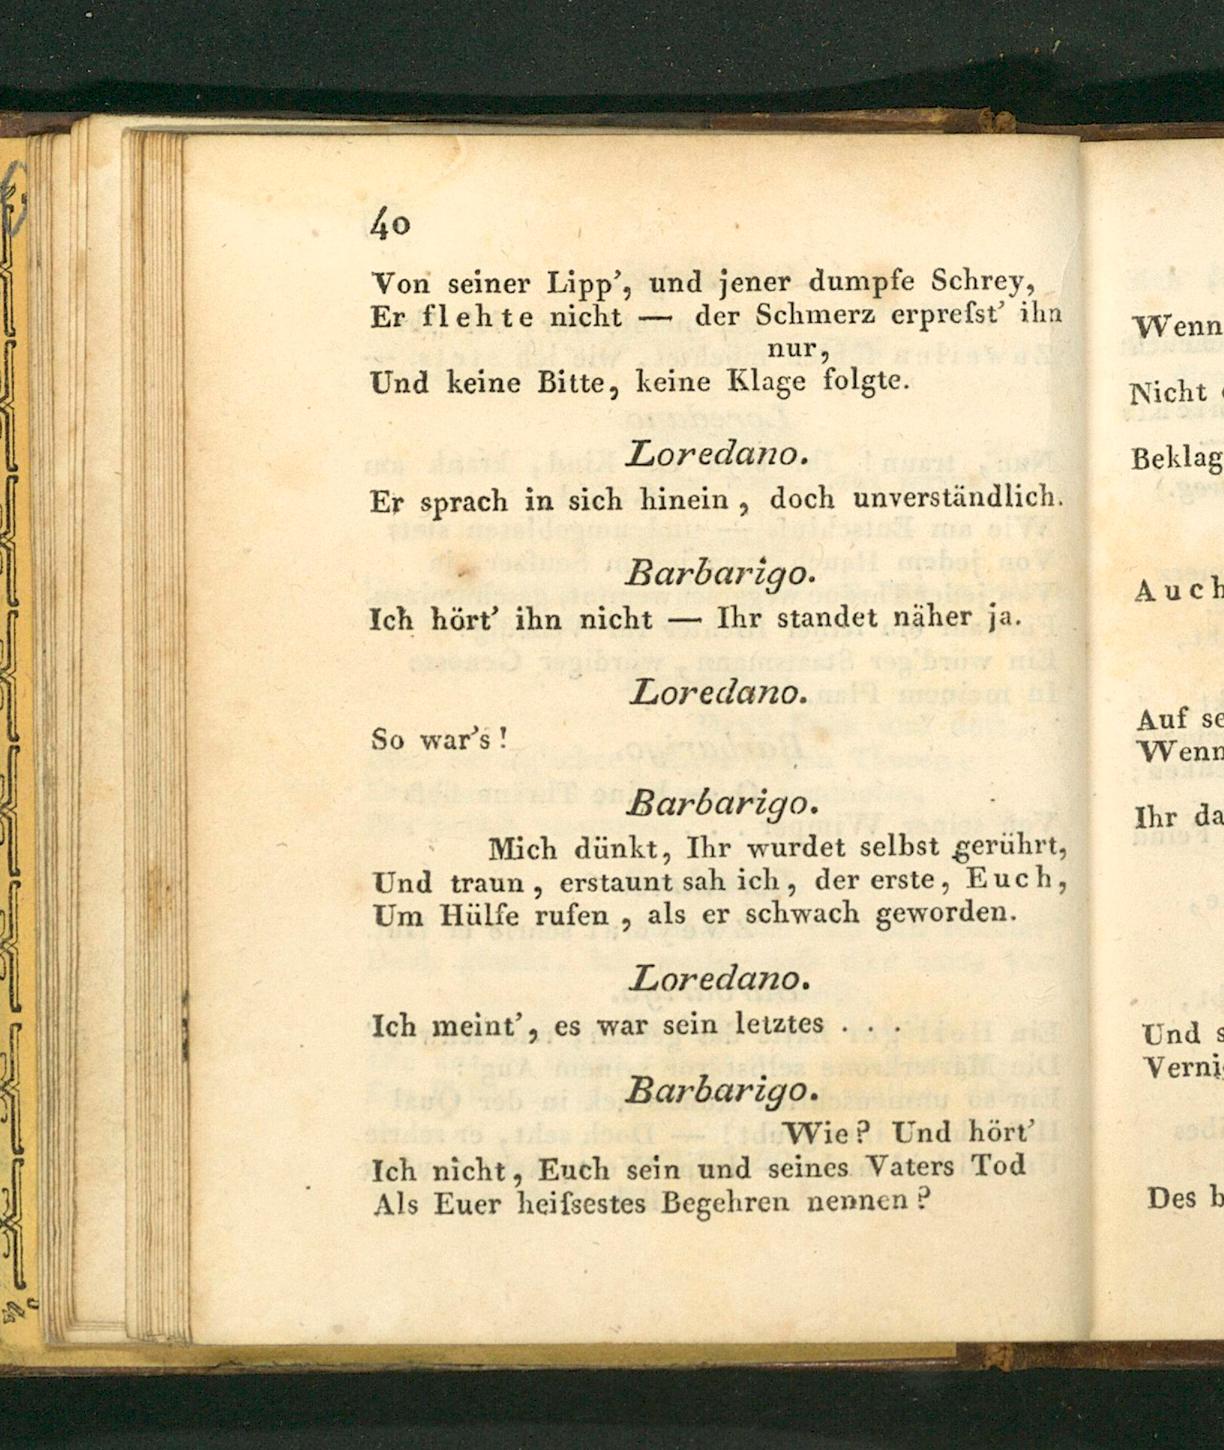 40
Von seiner Lipp', und jener dumpfe Schrey,
Er flehte nicht — der Schmerz erpreſst' ihn
nur,
Und keine Bitte, keine Klage folgte.
Loredano.
Er sprach in sich hinein, doch unverständlich.
Barbarigo.
Ich hört' ihn nicht — Ihr standet näher ja.
Loredano.
So war's!
Barbarigo.
Mich dünkt, Ihr wurdet selbst gerührt,
Und traun, erstaunt sah ich, der erste, Euch,
Um Hülfe rufen, als er schwach geworden.
Loredano.
Ich meint', es war sein letztes . . .
Barbarigo.
Wie? Und hört'
Ich nicht, Euch sein und seines Vaters Tod
Als Euer heiſsestes Begehren nennen?
Wenn
Nicht
Beklag
Auch
Auf se
Wenn
Ihr da
Und s
Verni
Des b